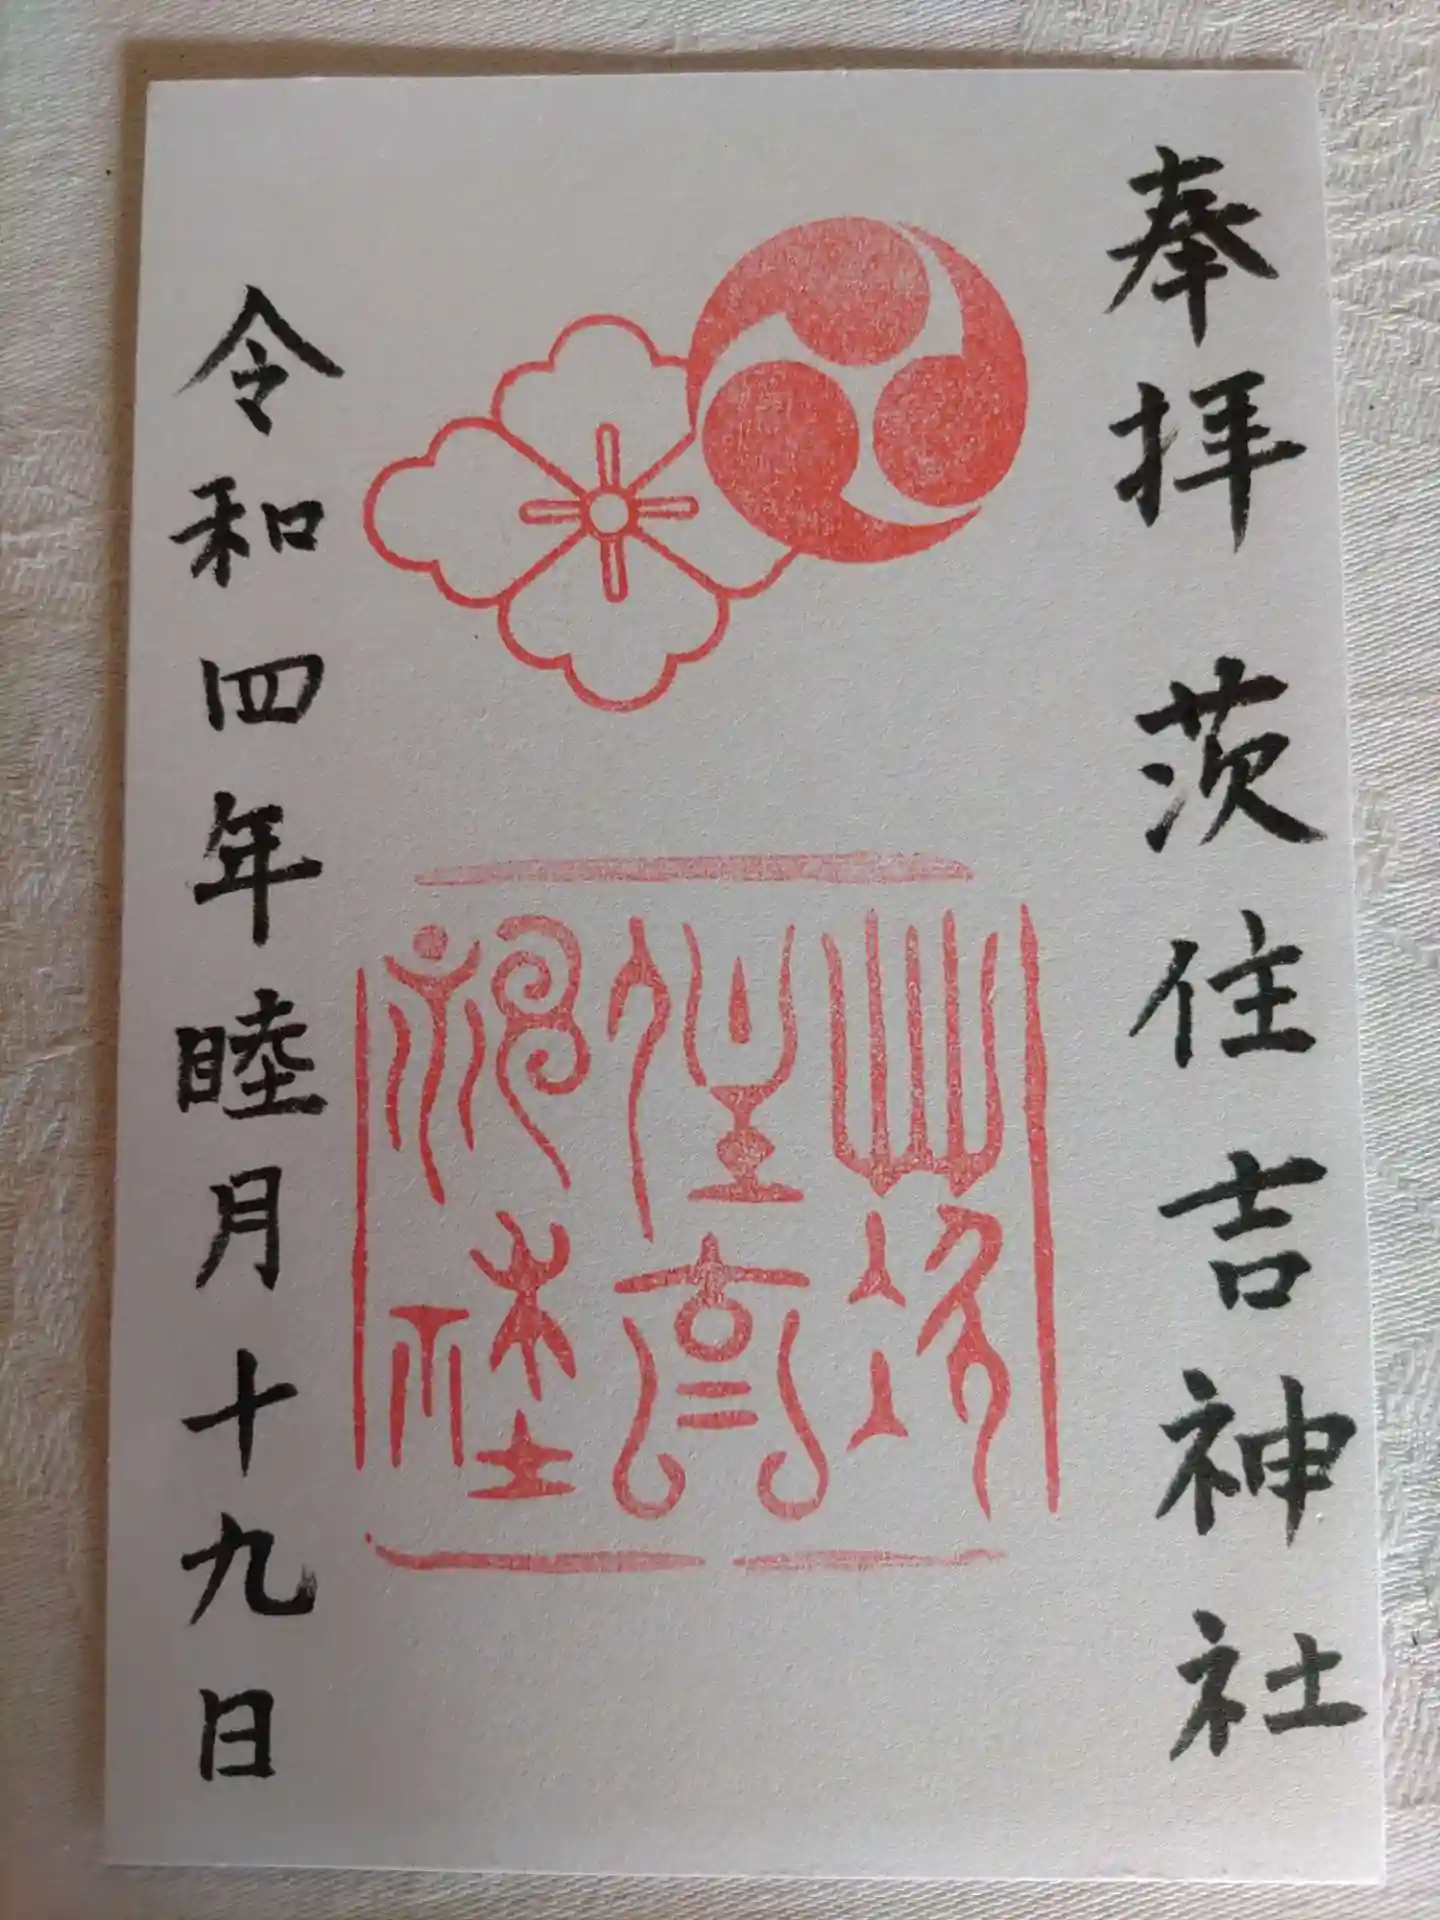 奉拝 茨住吉神社
茨住吉神社
令和四年睦月十九日